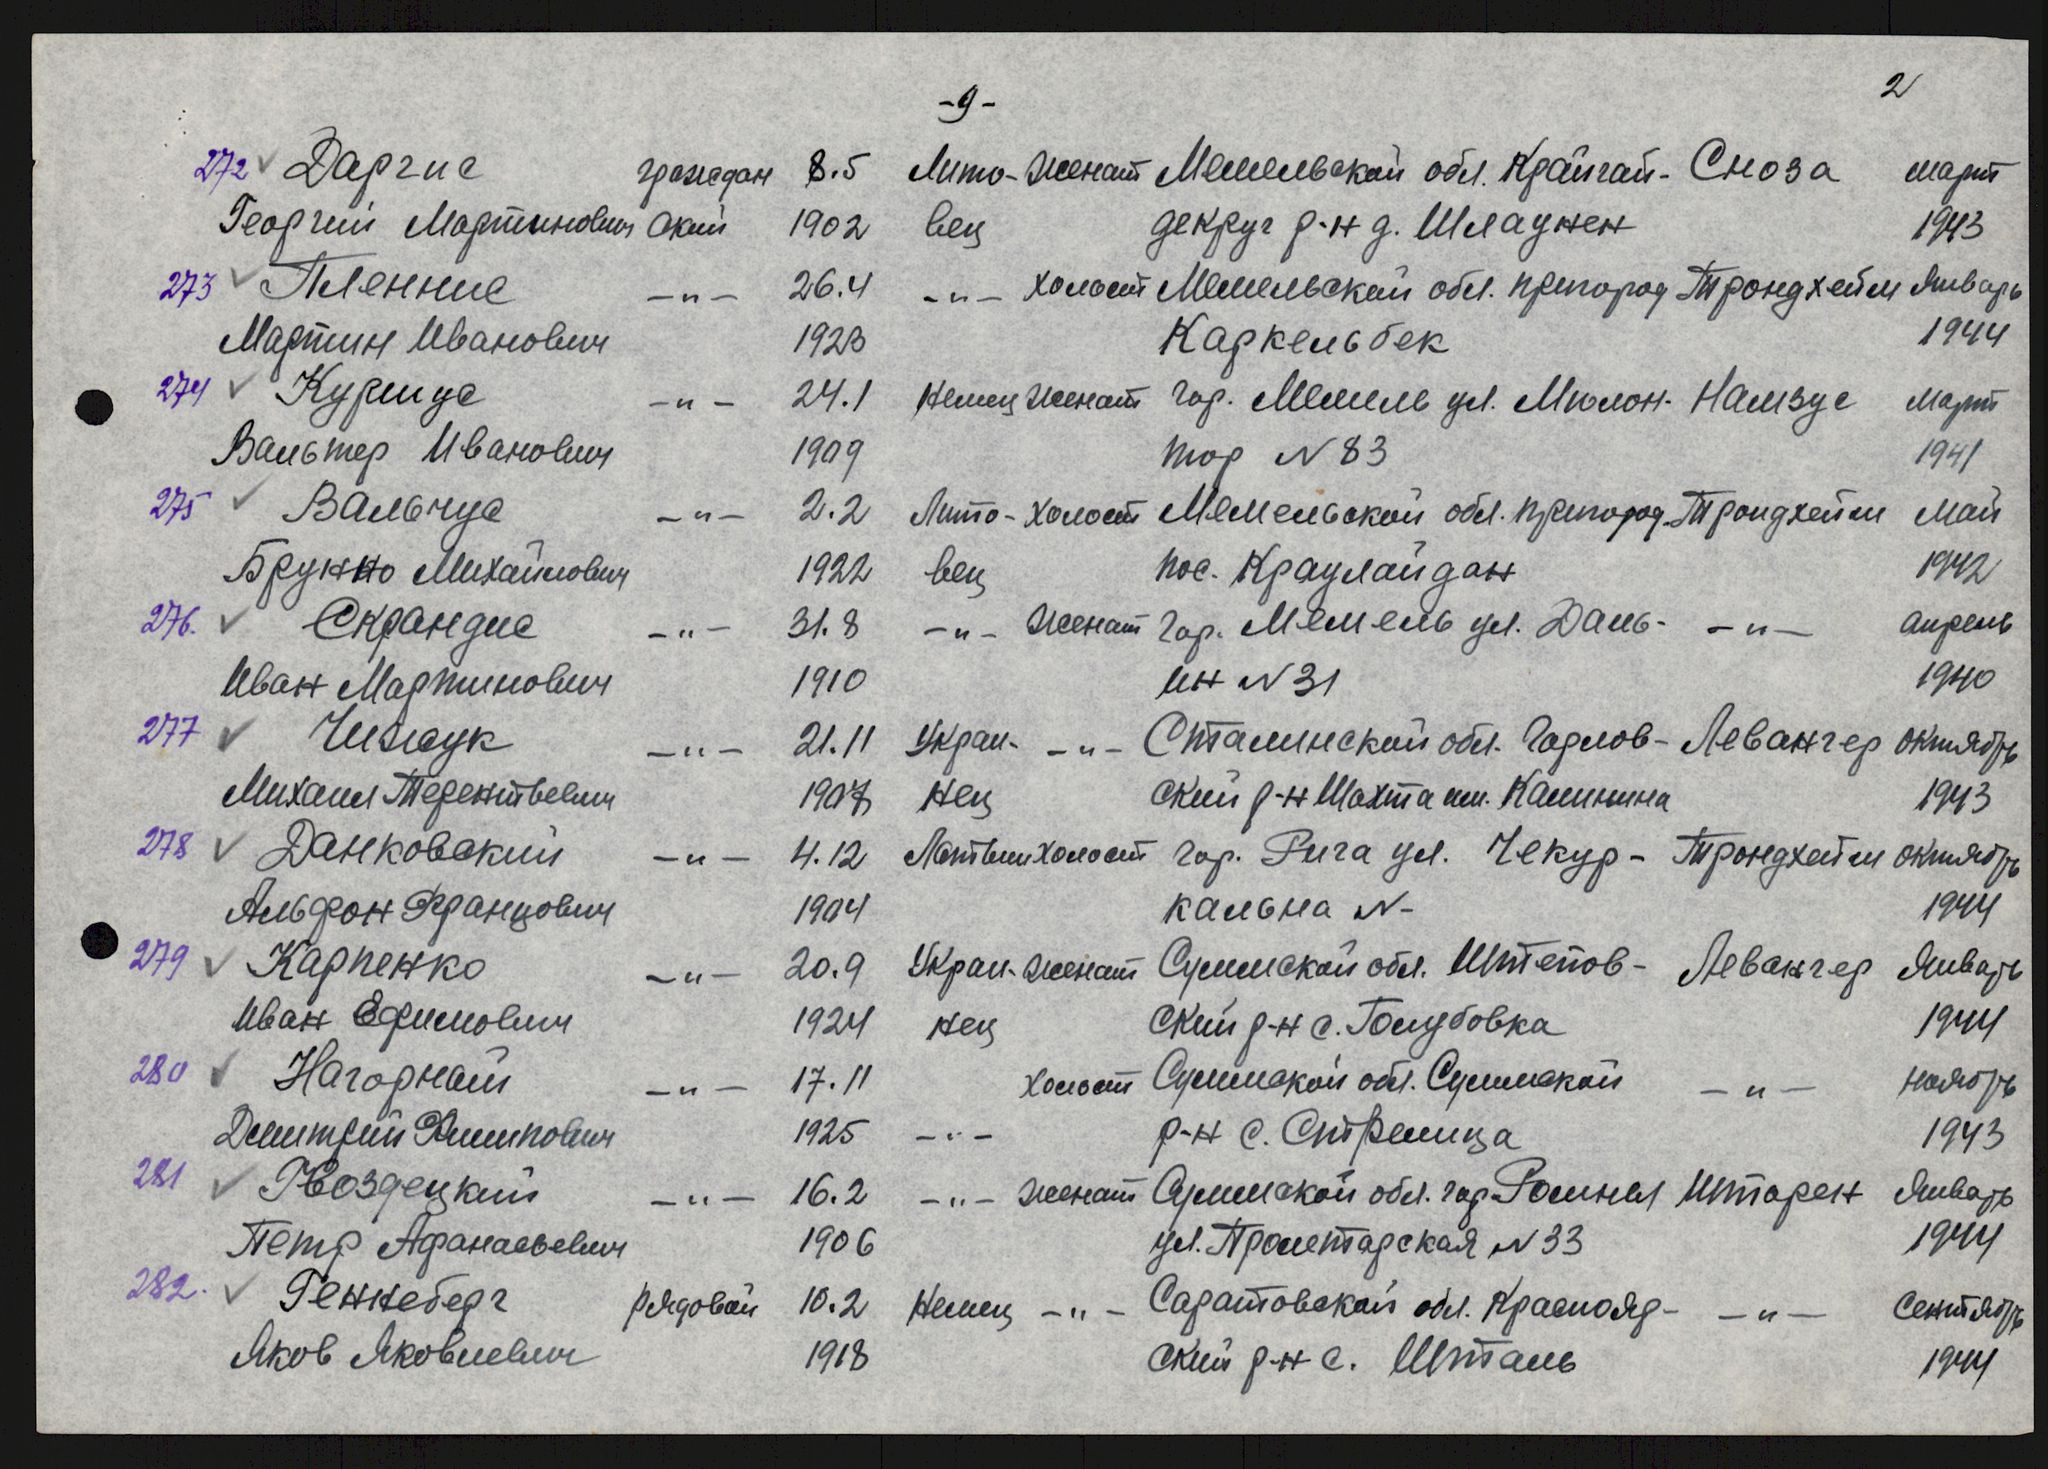 -9- 2
272 Даргис граждан 8.5 Лито- Женат Мемельской обл. Крайгай- Сноза март
Георгий Мартинович ский 1902 вец декруг р-н д. Шлаунен 1943
273 Пленние -"- 26.4 -"- холост Мемельской обл. пригород Трондхейм Январь
Мартин Иванович 1923 Каркельбек 1944
274 Куршус -"- 24.1 Немец Женат гор. Мемель ул. Мюлон- Намзус март
Вальтер Иванович 1909 тор N 83 1941
275 Вальчус -"- 2.2 Лито- холост Мемельской обл. пригород Трондхейм Май
Брунно Михайлович 1922 вец пос. Краулайдан 1942
276. Скрандис -"- 31.8 -"- Женат гор. Мемель ул. Даль- -"- апрель
Иван Мартинович 1910 ин N 31 1940
277 Чижук -"- 21.11 Украи- -"- Сталинской обл. Горлов- Левангер октябрь
Михаил Терентьевич 1907 нец ский р-н Шахта им. Калинина 1943
278 Данковский -"- 4.12 Латвии холост гор. Рига ул. Чекур- Трондхейм октябрь
Альфон Францович 1904 кальна N- 1944
279 Карпенко -"- 20.9 Украи- женат Суммской обл. Штепов- Левангер Январь
Иван Ефимович 1924 нец ский р-н с. Голубовка 1944
280 Нагорнай -"- 17.11 холост Сумmской обл. Сумmской -"- ноябрь
Дмитрий Филипович 1925 -"- р-н с. Стрелица 1943
281 Гвоздецкий -"- 16.2 -"- женат Сумmской обл. гор. Ромны Штарен Январь
Петр Афанасьевич 1906 ул. Пролетарская N 33 1944
282. Геннеберг рядовой 10.2 Немец -"- Саратовской обл. Краснояр- -"- сентябрь
Яков Яковлевич 1918 ский р-н с. Шталь 1944